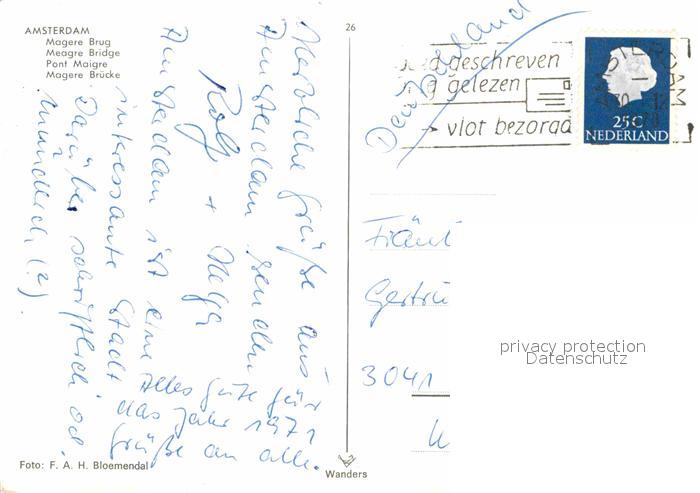 AMSTERDAM
Magere Brug
Meagre Bridge
Pont Maigre
Magere Brücke
26
Herzliche Grüße aus
Amsterdam senden
Rolf +
Amsterdam ist eine
interessante Stadt
Darüber schriftlich od.
mündlich (?)
Alles Gute für
das Jahr 1971
Grüße an alle.
Deutschland
goed geschreven
gelezen
vlot bezorgd
AMSTERDAM
25C
NEDERLAND
Fräul
Gertru
3041
privacy protection
Datenschutz
Foto: F. A. H. Bloemendal
Wanders